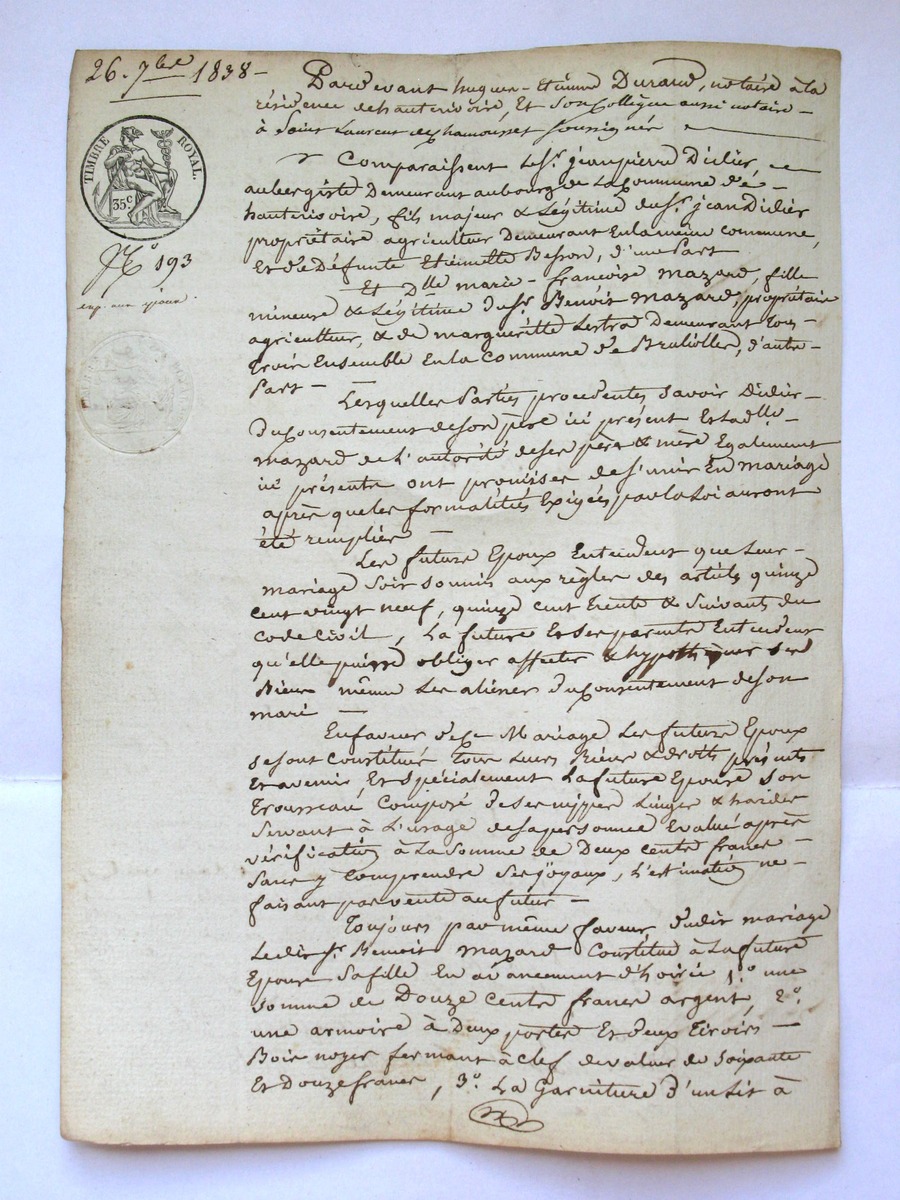 26. 7bre 1838 -
TIMBRE ROYAL.
35.c
N.o 193
exp. aux époux.
Pardevant hugues-Etienne Durand, notaire à la
résidence de hauterivoire, Et son Collègue aussi notaire -
à Saint Laurent de chamousset soussignés
Comparaissent le Sr. jean pierre Didier,
aubergiste Demeurant au bourg de la Commune de
hauterivoire, fils majeur & Légitime du Sr. jean Didier
propriétaire agriculteur demeurant En la même commune,
Et de Défunte Etiennette Besson, d'une Part
Et Dlle marie-françoise mazard, fille
mineure & Légitime du Sr. Benoit mazard, propriétaire
agriculteur, & de marguerite Lestra Demeurant tous -
trois Ensemble En la Commune de Brullioles, d'autre -
Part -
Lesquelles Parties procedentes Savoir Didier -
du Consentement de son père ici présent Et la dlle. -
mazard de l'autorité de ses père & mère Egalement
ici présents ont promisses de s'unir En mariage
après que les formalités Exigées par la Loi auront
été remplies -
Les futurs Epoux Entendent que Leur -
mariage Soit soumis aux règles des articles quinze
cent vingt neuf, quinze cent trente & Suivants du
Code Civil, La future Et ses parents Entendent
qu'elle puisse obliger affecter & hypothéquer ses
Biens même Les aliéner du Consentement de son
mari -
En faveur de ce Mariage Les futurs Epoux
se sont Constitués tous Leurs Biens & droits présents
Et avenir, Et spécialement La future Epouse son
Trousseau Composé de ses nippes Linges & hardes
Servant à L'usage de sa personne Evalué après
vérification à La Somme de Deux cents francs -
Sans y Comprendre Ses joyaux, L'estimation ne -
faisant pas vente au futur -
Toujours par même faveur dudit mariage
Ledit Sr. Benoit mazard Constitue à La future
Epouse Sa fille En avancement d'hoirie 1.o une
somme de Douze Cents francs argent, 2.o
une armoire à deux portes Et deux Tiroirs -
Bois noyer fermant à clef de valeur de Soixante
Et Douze francs, 3.o La Garniture d'un Lit à